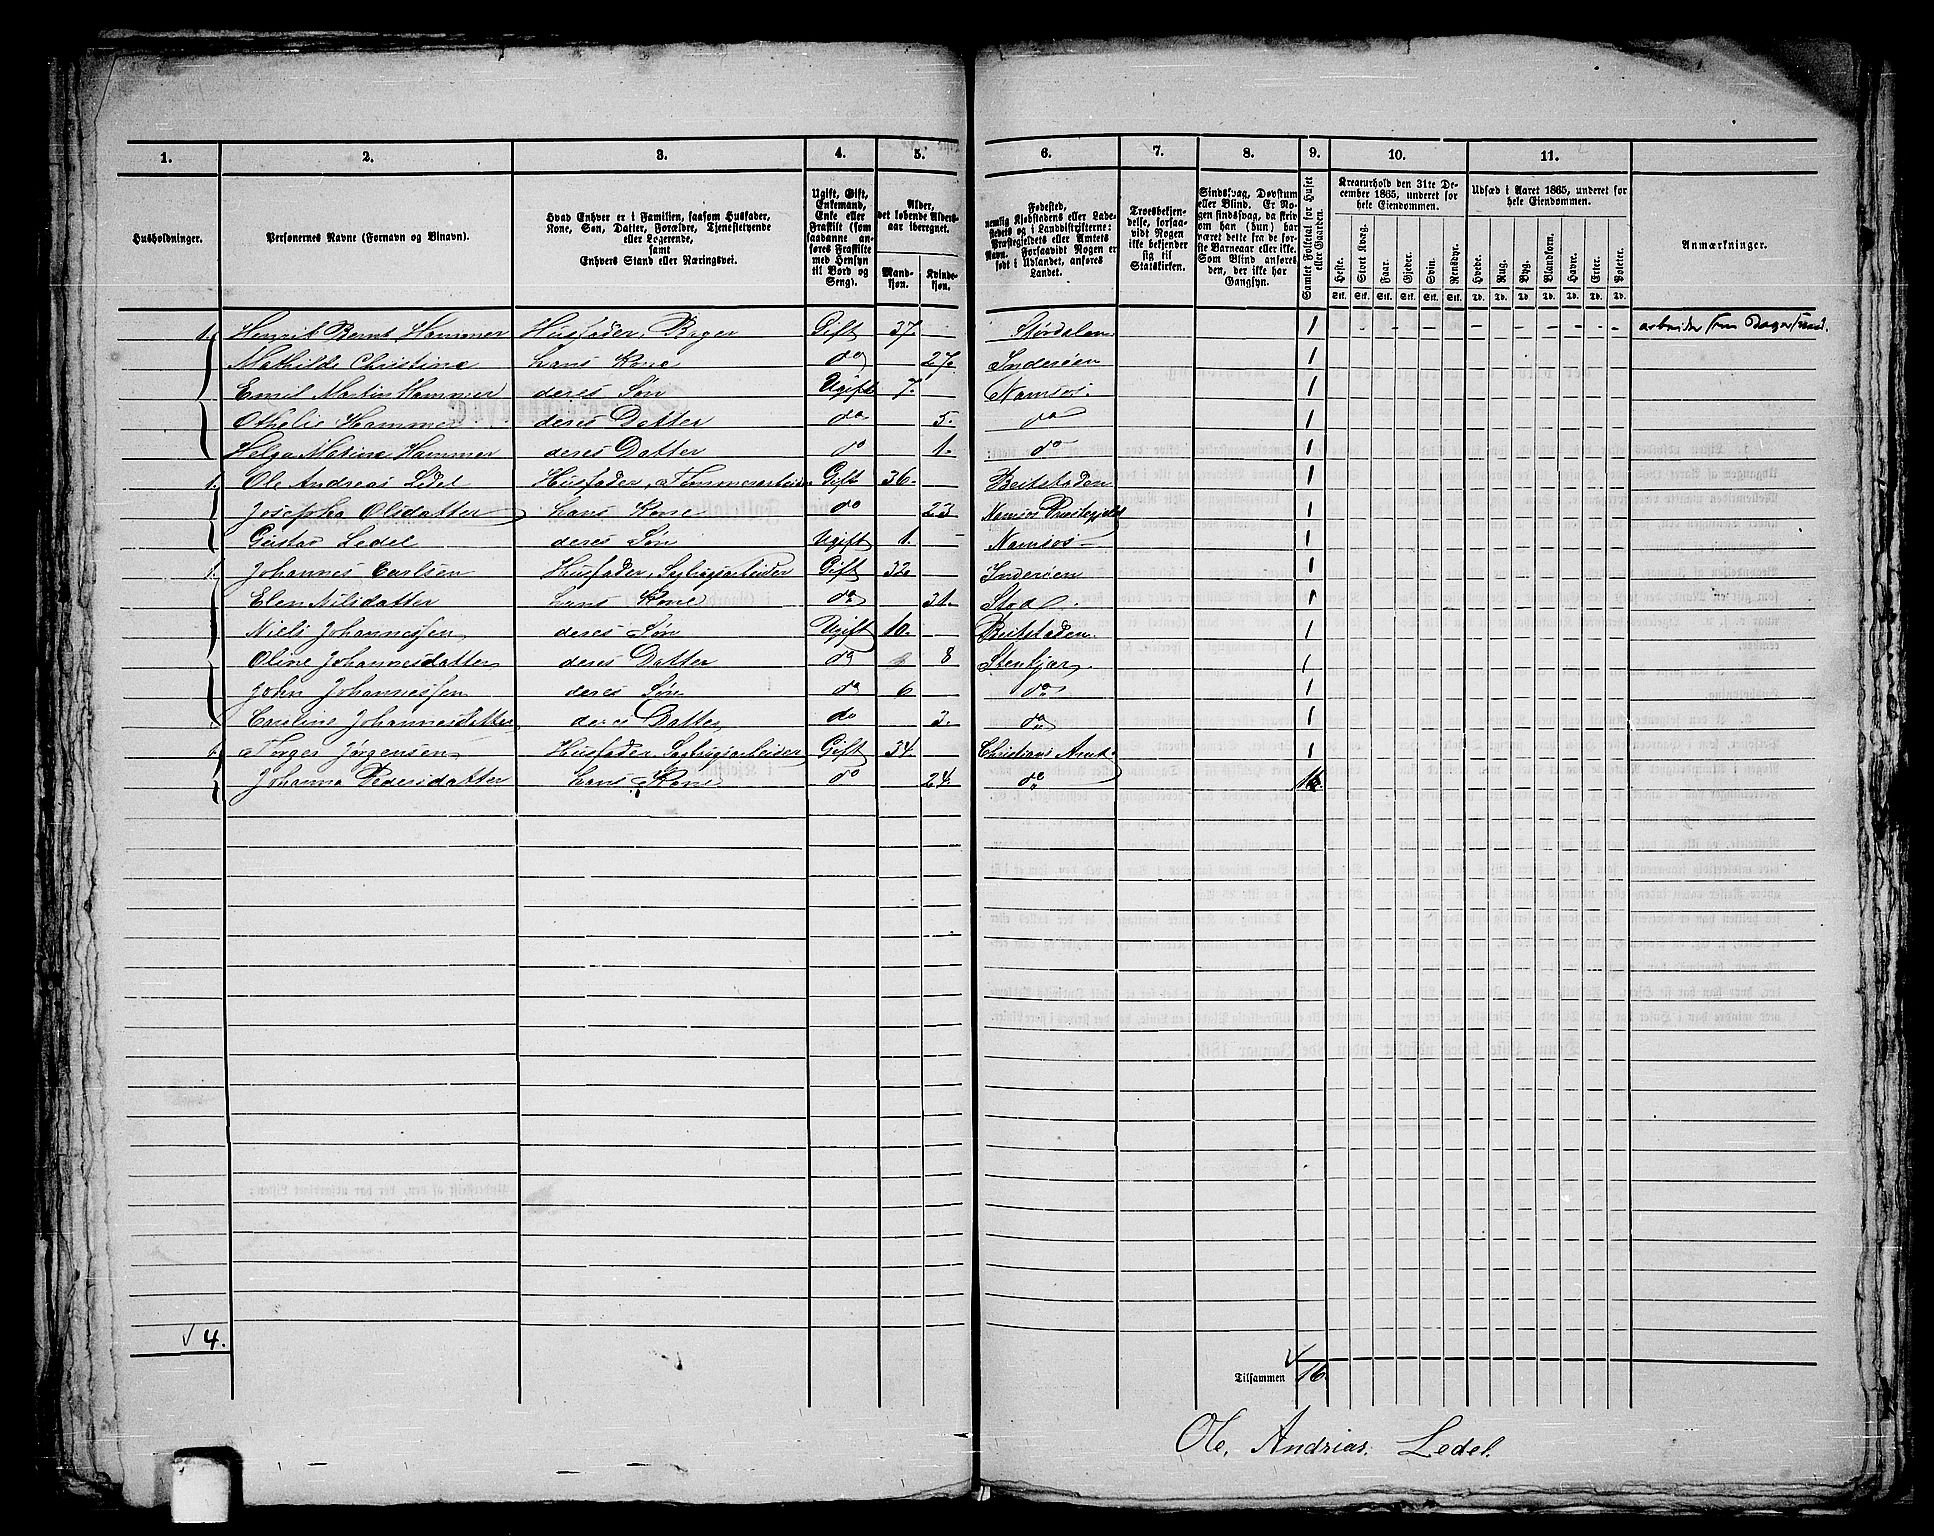 1. 2. 3. 4. 5. 6. 7. 8. 9. 10. 11.
Husholdninger.
Personernes Navne (Fornavn og Binavn).
Hvad Enhver er i Familien, saasom Husfader,
Kone, Søn, Datter, Forældre, Tjenestetyende
eller Logerende,
samt
Enhvers Stand eller Næringsvei.
Ugift, Gift,
Enkemand,
Enke eller
Fraskilt (som
saadanne an-
føres Fraskilte
med Hensyn
til Bord og
Seng).
Alder,
det løbende Alders-
aar iberegnet.
Mand-
kjøn.
Kvinde-
kjøn.
Fødested,
nemlig Kjøbstadens eller Lade-
stedets og i Landdistrikterne:
Præstegjeldets eller Amtets
Navn. Forsaavidt Nogen er
født i Udlandet, anføres
Landet.
Troesbekjen-
delse, forsaa-
vidt Nogen
ikke bekjender
sig til
Statskirken.
Sindssvag, Døvstum
eller Blind. Er No-
gen sindssvag, da skriv
om han (hun) har
været dette fra de før-
ste Barneaar eller ikke.
Som Blind anføres
den, der ikke har
Gangsyn.
Samlet Folketal for Huset
eller Gaarden.
Kreaturhold den 31te De-
cember 1865, underet for
hele Eiendommen.
Heste. Stort Kvæg. Faar. Gjeder. Svin. Rensdyr.
Stk. Stk. Stk. Stk. Stk. Stk.
Udsæd i Aaret 1865, underet for
hele Eiendommen.
Hvede. Rug. Byg. Blandkorn. Havre. Erter. Poteter.
Td. Td. Td. Td. Td. Td. Td.
Anmærkninger.
1. Henrik Bernt Hammer Husfader, Bager Gift 37. Størdalen 1 arbeider som
Mathilde Christine hans Kone do 27. Inderøen 1
Emil Martin Hammer deres Søn Ugift 7. Namsos. 1
Othelie Hammer deres Datter do 5. do 1
Helga Matine Hammer deres Datter do 1. do 1
1. Ole Andreas Ledel Husfader, Tømmerarbeider Gift 36. Beitstaden 1
Josepha Olsdatter hans Kone do 23 Namsos Præstegjeld 1
Gustav Ledel deres Søn Ugift 1. Namsos 1
1. Johannes Carlsen Husfader, Sagbrugsarbeider Gift 32. Inderøen 1
Elen Nilsdatter hans Kone do 31. Stod. 1
Niels Johannessen deres Søn Ugift 10. Beitstaden. 1
Oline Johannesdatter deres Datter do 8 Stenkjær. 1
John Johannessen deres Søn do 6 do 1
Caroline Johannesdatter deres Datter do 3. do 1
1. Torger Jørgensen Husfader, Sagbrugsarbeider Gift 34. Christians Amt. 1
Johanna Pedersdatter hans Kone do 24. do 1
4.
Tilsammen 16.
Ole. Andrias. Ledel.